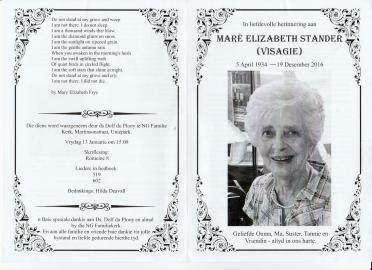 Do not stand at my grave and weep
I am not there. I do not sleep.
I am a thousand winds that blow.
I am the diamond glints on snow.
I am the sunlight on ripened grain.
I am the gentle autumn rain.
When you awaken in the morning's hush
I am the swift uplifting rush
Of quiet birds in circled flight.
I am the soft stars that shine at night.
Do not stand at my grave and cry,
I am not there. I did not die.
by Mary Elizabeth Frye
Die diens word waargeneem deur ds Dolf du Plooy te NG Familie
Kerk, Martinsonstraat, Uniepark.
Vrydag 13 Januarie om 15:00
Skriflesing:
Romeine 8
Liedere in liedboek:
519
602
Bedankings: Hilda Deavall
n Baie spesiale dankie aan Ds. Dolf du Plooy en almal
by die NG Familiekerk.
En aan alle familie en vriende baie dankie vir julle
bystand en liefde gedurende hierdie tyd.
In liefdevolle herinnering aan
MARÉ ELIZABETH STANDER
(VISAGIE)
5 April 1934 — 19 Desember 2016
Geliefde Ouma, Ma, Suster, Tannie en
Vriendin - altyd in ons harte.